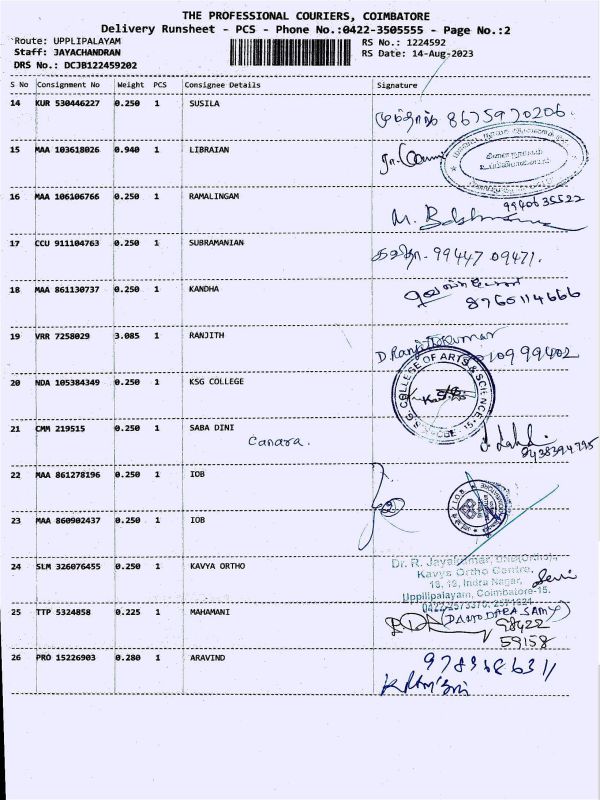 THE PROFESSIONAL COURIERS, COIMBATORE
Delivery Runsheet - PCS - Phone No.:0422-3505555 - Page No.:2
Route: UPPLIPALAYAM RS No.: 1224592
Staff: JAYACHANDRAN RS Date: 14-Aug-2023
DRS No.: DCJB122459202
S No Consignment No Weight PCS Consignee Details Signature
14 KUR 530446227 0.250 1 SUSILA
8675970206.
15 MAA 103618026 0.940 1 LIBRAIAN
16 MAA 106106766 0.250 1 RAMALINGAM
9940635522
17 CCU 911104763 0.250 1 SUBRAMANIAN
99447 09471.
18 MAA 861130737 0.250 1 KANDHA
8760114666
19 VRR 7258029 3.085 1 RANJITH
D.Ranjithkumar
20 NDA 105384349 0.250 1 KSG COLLEGE
COLLEGE OF ARTS & SCIENCE
21 CMM 219515 0.250 1 SABA DINI
Canara.
22 MAA 861278196 0.250 1 IOB
23 MAA 860902437 0.250 1 IOB
24 SLM 326076455 0.250 1 KAVYA ORTHO
Dr. R. Jayakumar,
Kavya Ortho Centre,
Indra Nagar,
Uppilipalayam, Coimbatore-15.
25 TTP 5324858 0.225 1 MAHAMANI
(DAMODARASAMY)
98422
59158
26 PRO 15226903 0.280 1 ARAVIND